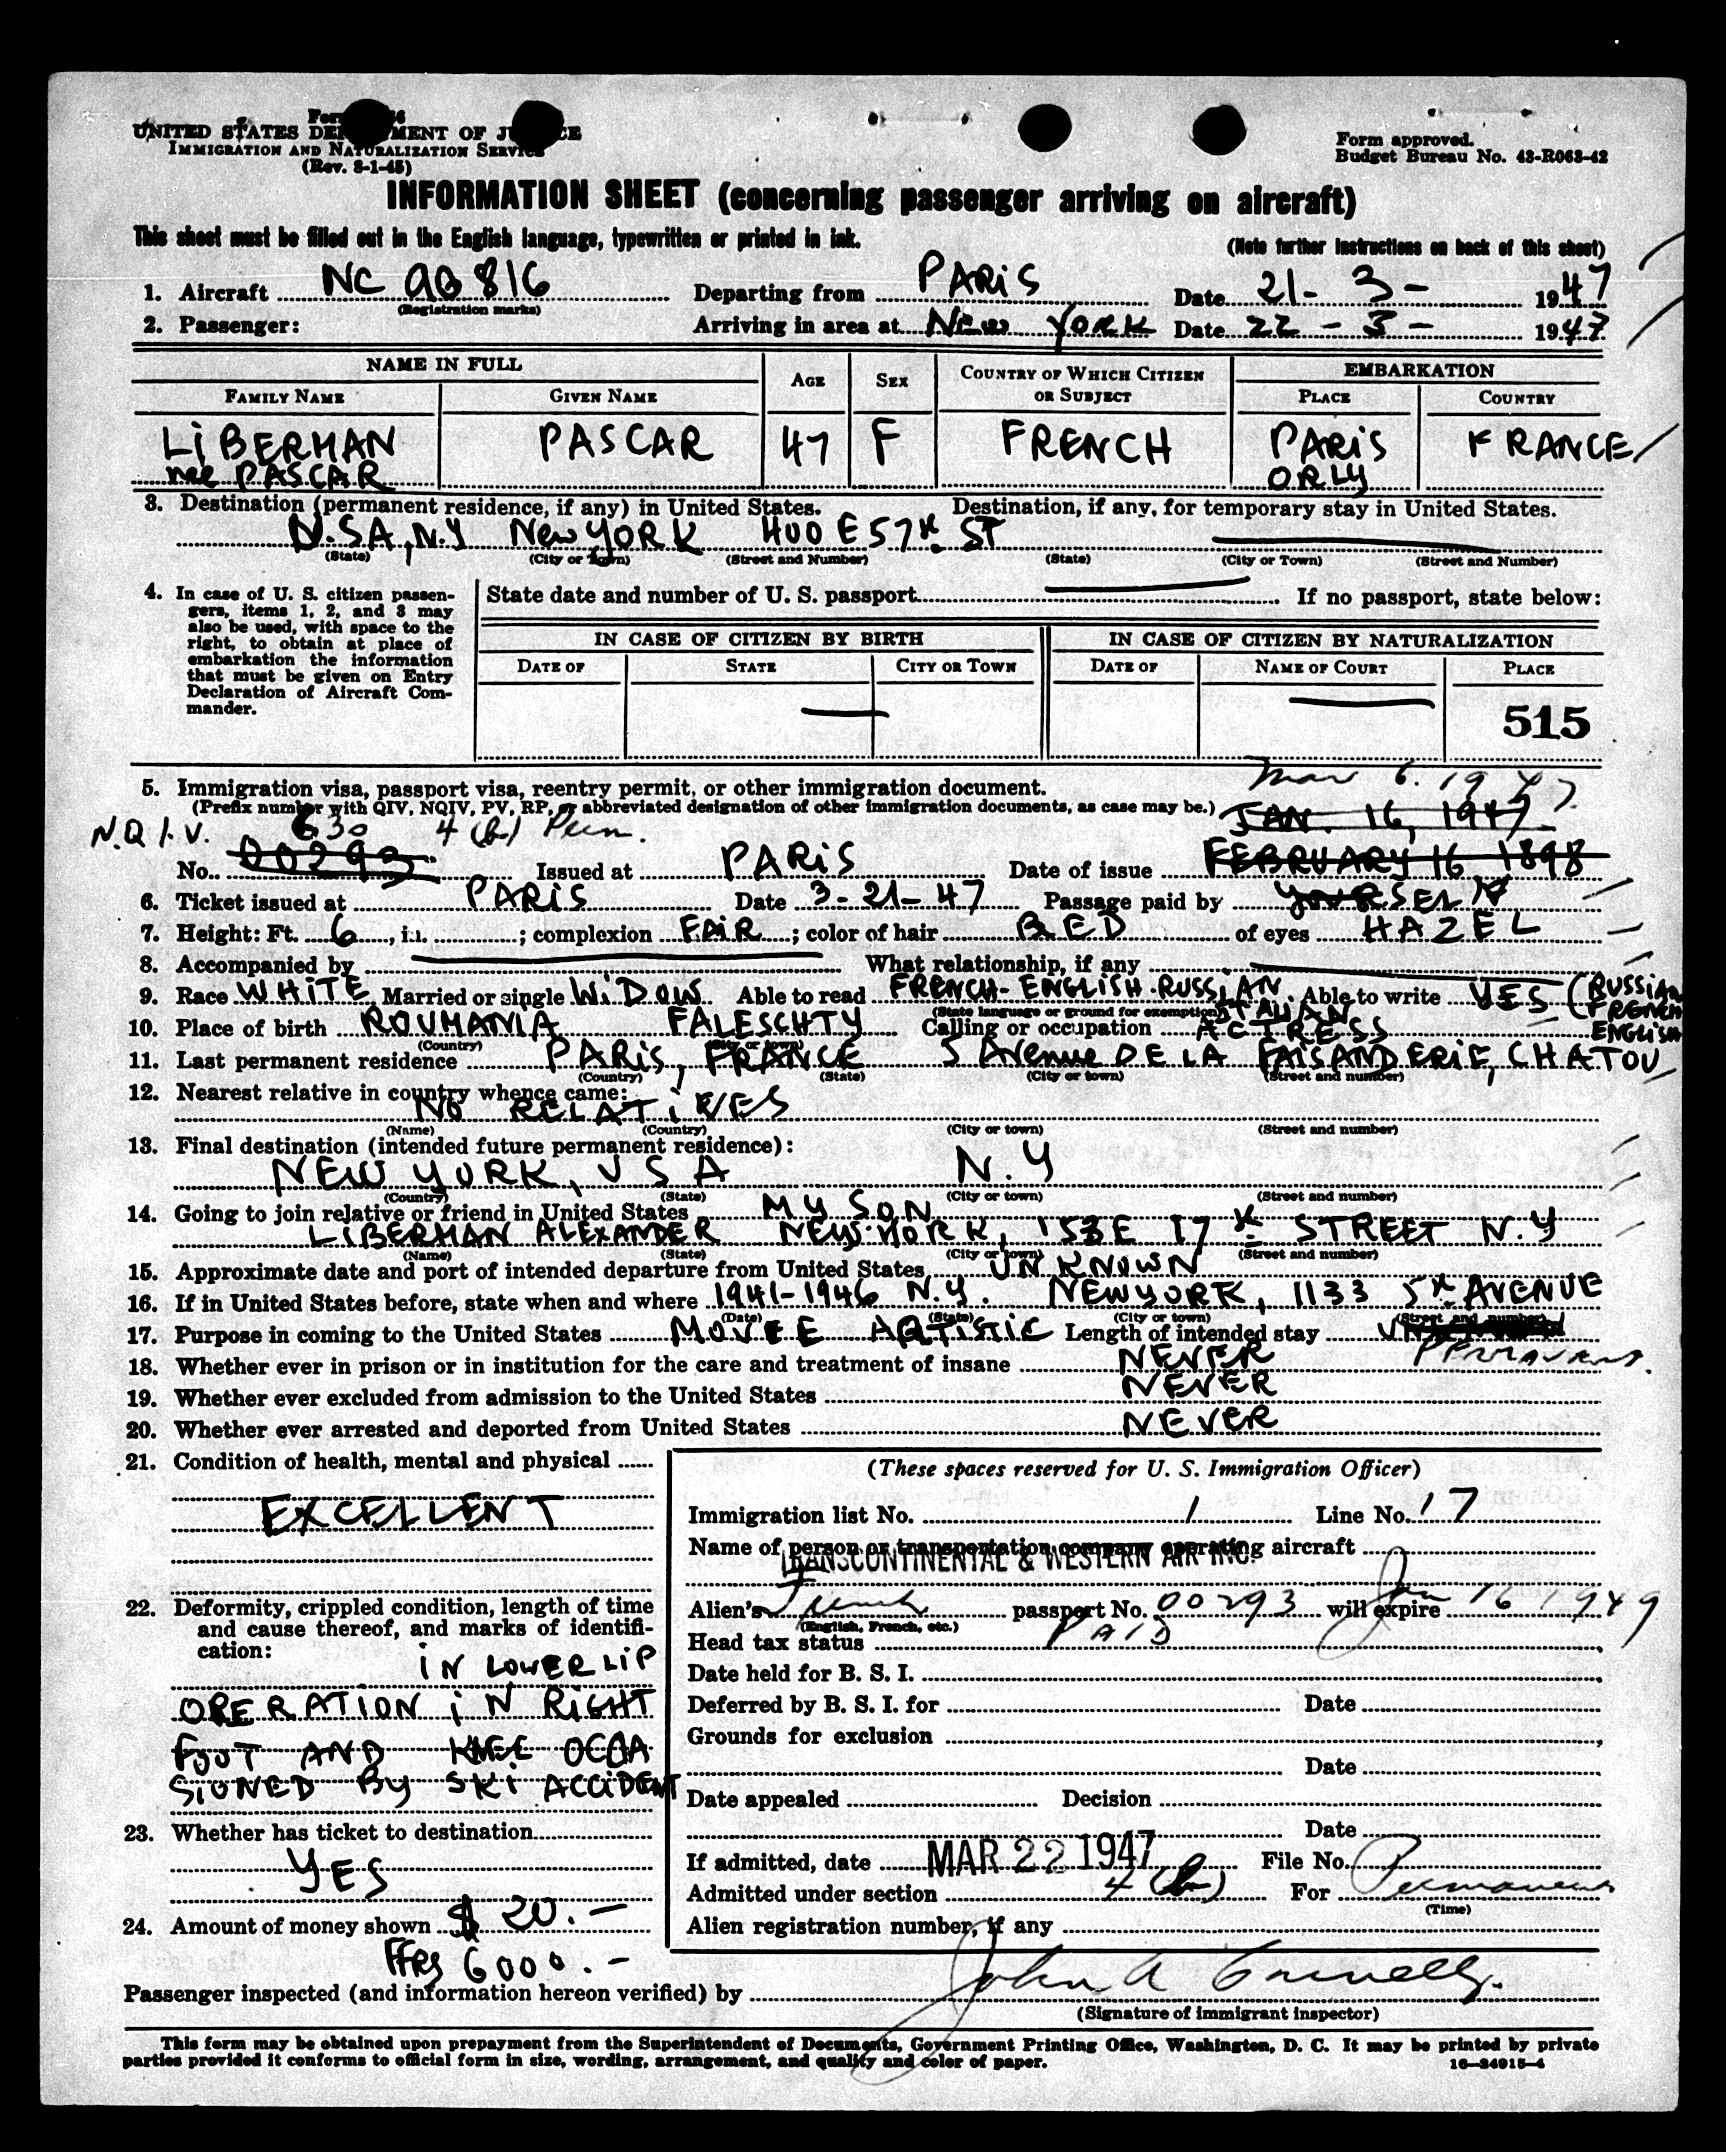 UNITED STATES DEPARTMENT OF JUSTICE
IMMIGRATION AND NATURALIZATION SERVICE
(Rev. 8-1-45)
Form approved.
Budget Bureau No. 43-R063-42
INFORMATION SHEET (concerning passenger arriving on aircraft)
This sheet must be filled out in the English language, typewritten or printed in ink.
(Note further instructions on back of this sheet)
1. Aircraft NC 90816 Departing from PARiS Date 21-3- 1947
(Registration marks)
2. Passenger: Arriving in area at New YORK Date 22-3- 1947
NAME IN FULL AGE SEX COUNTRY OF WHICH CITIZEN OR SUBJECT EMBARKATION
FAMILY NAME GIVEN NAME PLACE COUNTRY
LiBERMAN PASCAR 47 F FRENCH PARiS FRANCE
nee PASCAR ORLY
3. Destination (permanent residence, if any) in United States. Destination, if any, for temporary stay in United States.
U.S.A, N.Y New YORK 400 E 57th ST
(State) (City or Town) (Street and Number) (State) (City or Town) (Street and Number)
4. In case of U. S. citizen passengers, items 1, 2, and 3 may also be used, with space to the right, to obtain at place of embarkation the information that must be given on Entry Declaration of Aircraft Commander.
State date and number of U. S. passport If no passport, state below:
IN CASE OF CITIZEN BY BIRTH IN CASE OF CITIZEN BY NATURALIZATION
DATE OF STATE CITY OR TOWN DATE OF NAME OF COURT PLACE
515
5. Immigration visa, passport visa, reentry permit, or other immigration document.
Mar 6. 1947.
(Prefix number with QIV, NQIV, PV, RP, or abbreviated designation of other immigration documents, as case may be.)
JAN. 16, 1947
N.Q.I.V. 630 4(b) Perm.
No. 00293 Issued at PARiS Date of issue FEBRUARY 16 1898
6. Ticket issued at PARiS Date 3-21-47 Passage paid by YOURSELF
7. Height: Ft. 6, in. ; complexion FAIR; color of hair RED of eyes HAZEL
8. Accompanied by What relationship, if any
9. Race WHITE Married or single WiDOW Able to read FRENCH-ENGLISH-RUSSIAN Able to write YES (RUSSIAN FRENCH ENGLISH
(State language or ground for exemption) ITALIAN
10. Place of birth ROUMANIA FALESCHTY Calling or occupation ACTRESS
(Country) (City or town)
11. Last permanent residence PARiS, FRANCE 5 Avenue DE LA FAISANDERIE, CHATOU
(Country) (State) (City or town) (Street and number)
12. Nearest relative in country whence came:
NO RELATiVES
(Name) (Country) (City or town) (Street and number)
13. Final destination (intended future permanent residence):
NEW YORK, USA N.Y
(Country) (State) (City or town) (Street and number)
14. Going to join relative or friend in United States MY SON
LIBERMAN ALEXANDER NEW YORK, 153 E 17th STREET N.Y
(Name) (State) (City or town) (Street and number)
15. Approximate date and port of intended departure from United States UNKNOWN
16. If in United States before, state when and where 1941-1946 N.Y. NEW YORK, 1133 5th AVENUE
(Date) (State) (City or town) (Street and number)
17. Purpose in coming to the United States MOVEE ARTISTIC Length of intended stay
PERMANENT.
18. Whether ever in prison or in institution for the care and treatment of insane NEVER
19. Whether ever excluded from admission to the United States NEVER
20. Whether ever arrested and deported from United States NEVER
21. Condition of health, mental and physical
EXCELLENT
22. Deformity, crippled condition, length of time and cause thereof, and marks of identification:
iN LOWER LiP
OPERATION iN RiGHT
FOOT AND KNEE OCCA
SIONED BY SKi ACCiDENT
23. Whether has ticket to destination
YES
24. Amount of money shown $ 20.-
FFRS 6000.-
(These spaces reserved for U. S. Immigration Officer)
Immigration list No. 1 Line No. 17
Name of person or transportation company operating aircraft
TRANSCONTINENTAL & WESTERN AIR INC.
Alien's French passport No. 00293 will expire Jan 16 1949
(English, French, etc.)
Head tax status PAID
Date held for B. S. I.
Deferred by B. S. I. for Date
Grounds for exclusion
Date
Date appealed Decision
Date
If admitted, date MAR 22 1947 File No.
Admitted under section 4(b) For Permanent
(Time)
Alien registration number, if any
Passenger inspected (and information hereon verified) by John A
(Signature of immigrant inspector)
This form may be obtained upon prepayment from the Superintendent of Documents, Government Printing Office, Washington, D. C. It may be printed by private
parties provided it conforms to official form in size, wording, arrangement, and quality and color of paper. 16-34915-4